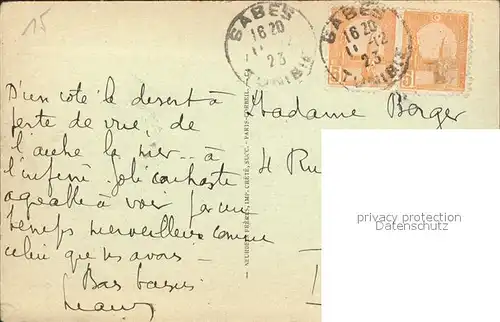 15
GABES
16 20
11 -12
23
TUNISIE
GABES
16 20
11 -12
23
TUNISIE
D'un coté le desert à
perte de vue, de
l'autre la mer .. à
l'infini. Joli contraste
agréable à voir par un
temps merveilleux comme
celui que ns avons -
Bons baisers
Madame Berger
4 Ru
NEURDEIN FRÈRES, IMP. CRÉTÉ, SUCC. - PARIS-CORBEIL.
privacy protection
Datenschutz